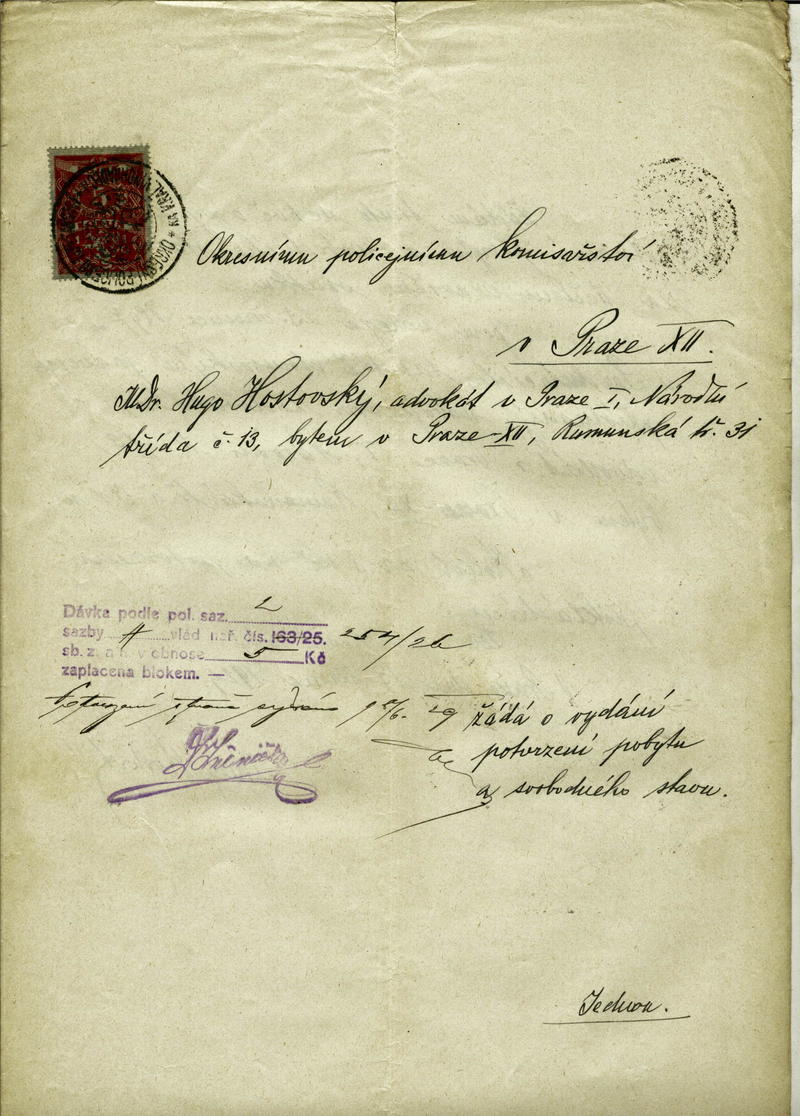 Okresnímu policejnímu komisařství
v Praze XII.
JUDr. Hugo Hostovský, advokát v Praze I, Národní
třída č. 13, bytem v Praze-XII, Rumunská tř. 31
Dávka podle pol. saz. 2
sazby A vlád nař. čís. 163/25. 254/26
sb. z. a n. v obnose 5 Kč
zaplacena blokem. —
žádá o vydání
potvrzení pobytu
a svobodného stavu.
Jednou.